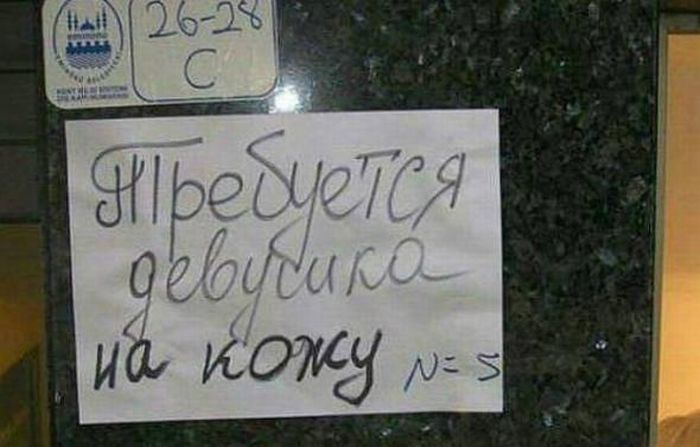 26-28
C
Требуется
девушка
на кожу N= 5